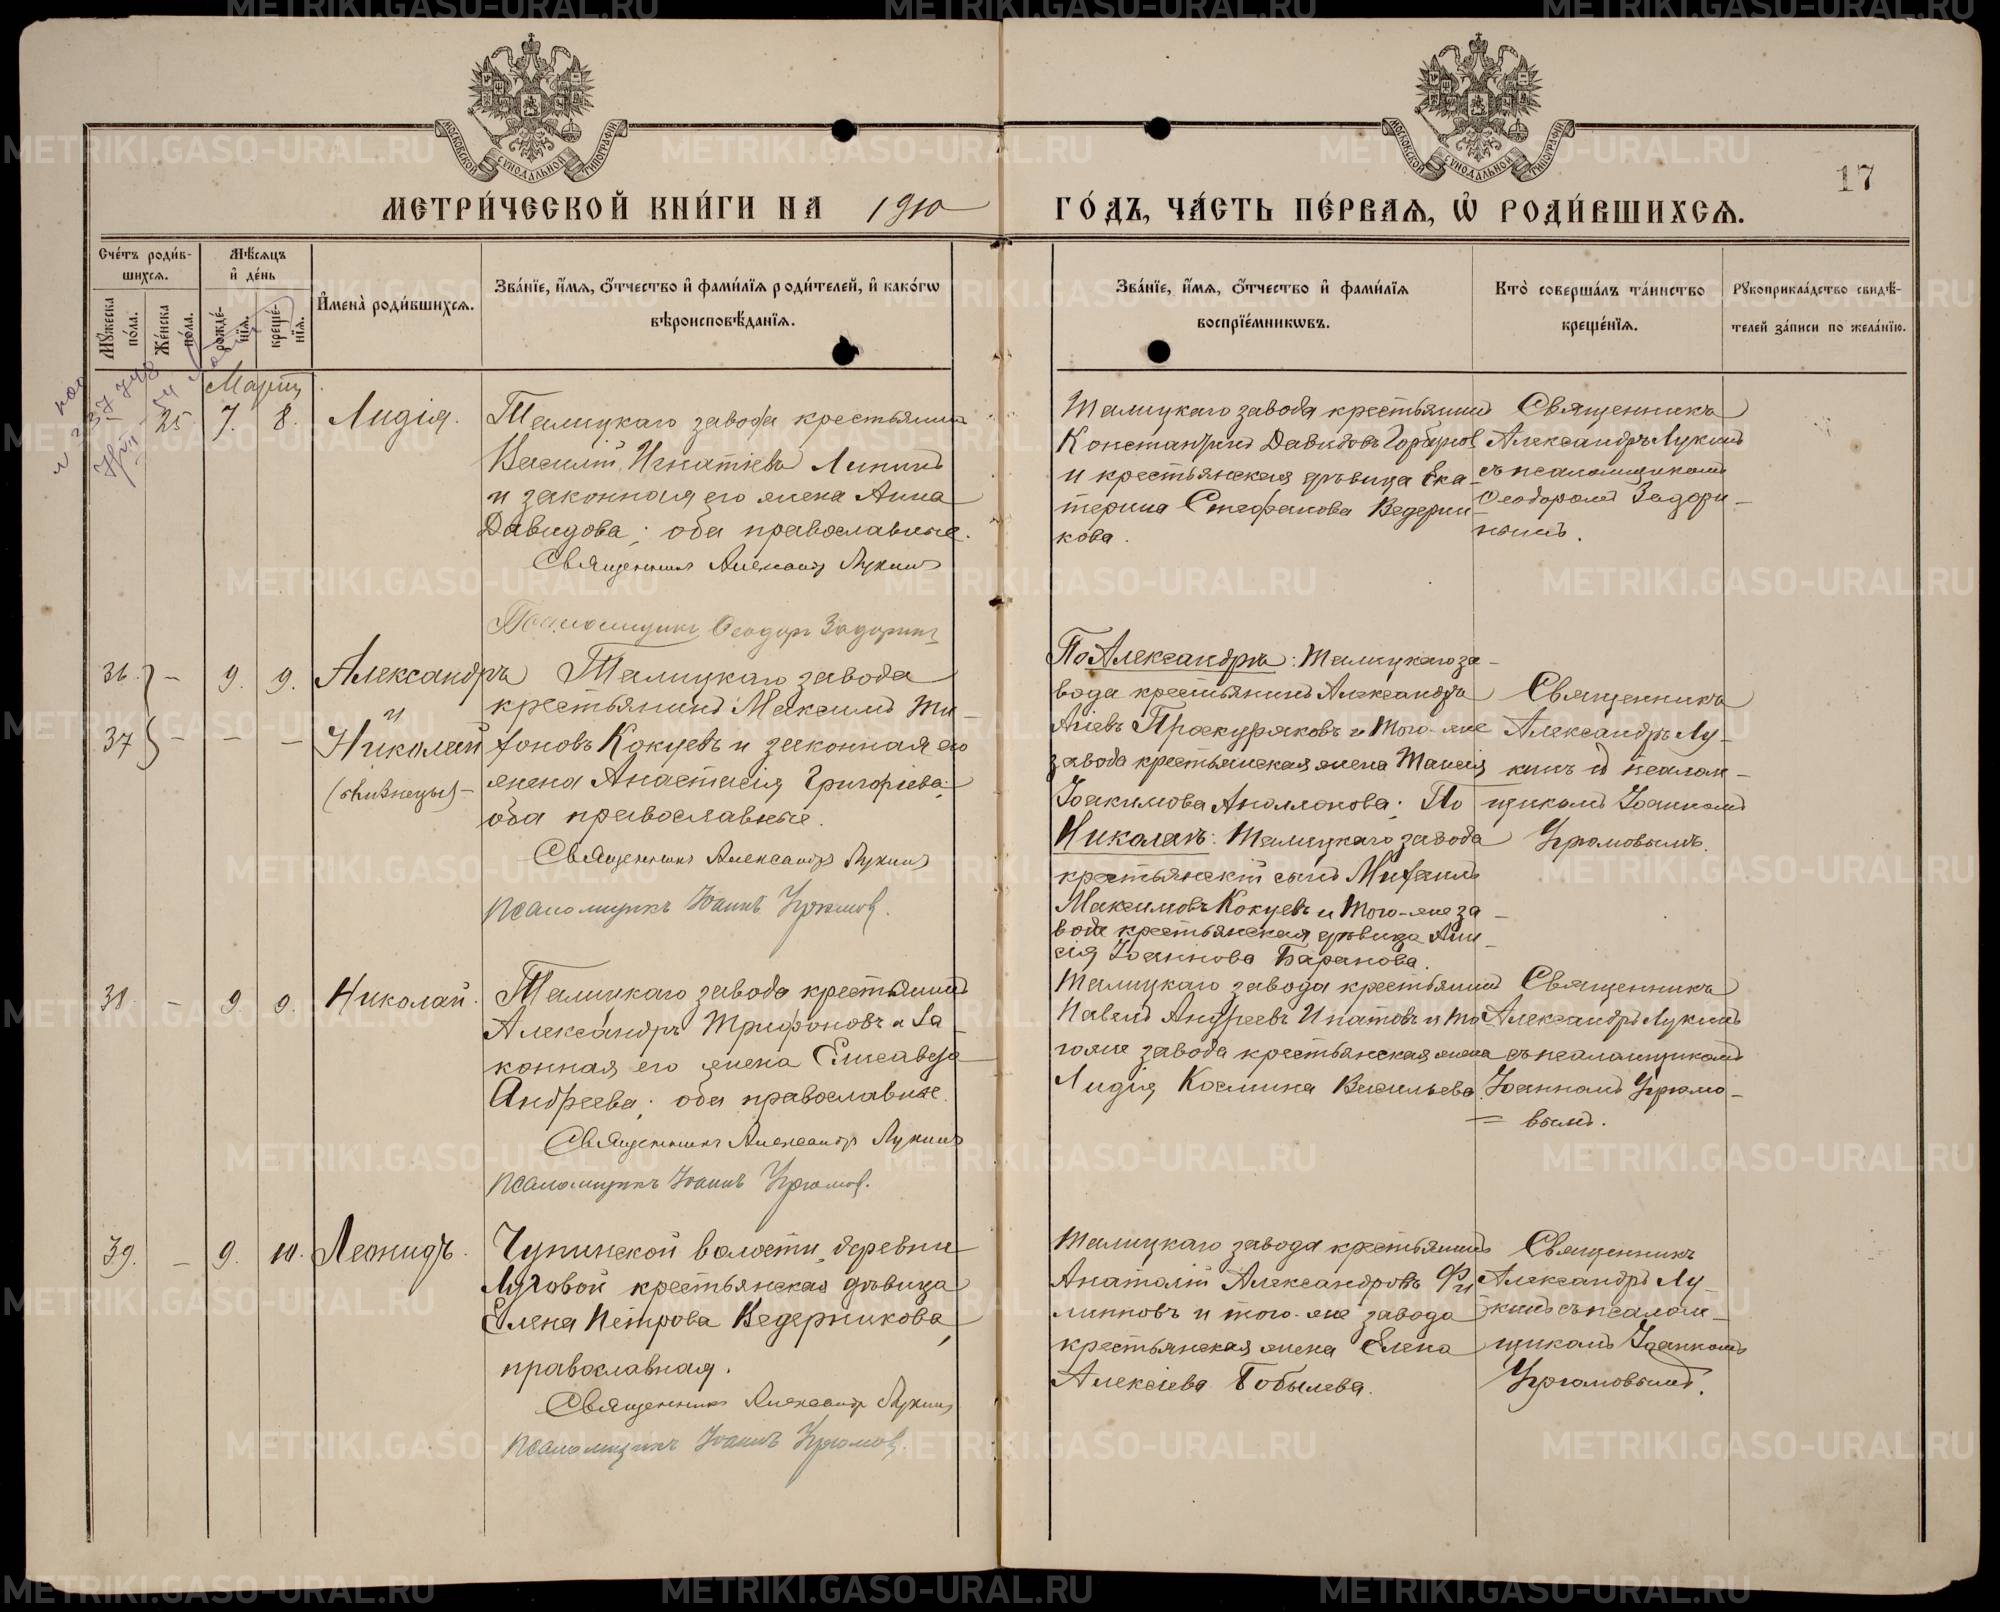 МЕТРИ́ЧЕСКОЙ КНИ́ГИ НА 1910
ГО́ДЪ, ЧА́СТЬ ПЕ́РВАѦ, Ѽ РОДИ́ВШИХСѦ.
17
МОСКОВСКОЙ СѴНОДАЛЬНОЙ ТИПОГРАФІИ
МОСКОВСКОЙ СѴНОДАЛЬНОЙ ТИПОГРАФІИ
Сче́тъ роди́в-
шихсѧ.
Мꙋ́жеска по́ла.
Же́нска по́ла.
Мѣ́сѧцъ
и҆ де́нь
рожде́-
нїѧ.
креще́-
нїѧ.
И҆мена̀ роди́вшихсѧ.
Зва́нїе, и҆́мѧ, ѻ҆́тчество и҆ фами́лїѧ роди́телей, и҆ како́гѡ
вѣроисповѣ́данїѧ.
Зва́нїе, и҆́мѧ, ѻ҆́тчество и҆ фами́лїѧ
воспрїе́мникѡвъ.
Кто̀ соверша́лъ та́инство
креще́нїѧ.
Рꙋкоприкла́дство свидѣ́-
телей за́писи по жела́нїю.
Мартъ
25 7. 8. Лидія.
Талицкаго завода крестьянинъ
Василій Игнатіевъ Лининъ
и законная его жена Анна
Давидова; оба православные.
Священникъ Александръ Лукинъ
Псаломщикъ Ѳеодоръ Задоринъ
Талицкаго завода крестьянинъ
Константинъ Давидовъ Горбуновъ
и крестьянская дѣвица Ека-
терина Стефанова Ведерни-
кова.
Священникъ
Александръ Лукинъ
съ псаломщикомъ
Ѳеодоромъ Задори-
нымъ.
36. – 9. 9. Александръ
и
37 – – – Николай
(близнецы) –
Талицкаго завода
крестьянинъ Максимъ Ти-
ѳоновъ Кокуевъ и законная его
жена Анастасія Григоріева;
оба православные.
Священникъ Александръ Лукинъ
Псаломщикъ Іоаннъ Угрюмовъ.
По Александрѣ: Талицкаго за-
вода крестьянинъ Александръ
Агіевъ Проскуряковъ и того-же
завода крестьянская жена Таисія
Іоакимова Аполлонова; По
Николаѣ: Талицкаго завода
крестьянскій сынъ Михаилъ
Максимовъ Кокуевъ и того-же за-
вода крестьянская дѣвица Ани-
сія Іоаннова Баранова.
Священникъ
Александръ Лу-
кинъ съ псалом-
щикомъ Іоанномъ
Угрюмовымъ.
38 – 9 9. Николай.
Талицкаго завода крестьянинъ
Александръ Трифоновъ и за-
конная его жена Елисавета
Андреева; оба православные.
Священникъ Александръ Лукинъ
Псаломщикъ Іоаннъ Угрюмовъ.
Талицкаго завода крестьянинъ
Павелъ Андреевъ Ипатовъ и то
гоже завода крестьянская жена
Лидія Космина Васильева.
Священникъ
Александръ Лукинъ
съ псаломщикомъ
Іоанномъ Угрюмо-
= вымъ.
39. – 9. 10. Леонидъ.
Чупинской волости, деревни
Луговой крестьянская дѣвица
Елена Петрова Ведерникова,
православная.
Священникъ Александръ Лукинъ
Псаломщикъ Іоаннъ Угрюмовъ.
Талицкаго завода крестьянинъ
Анатолій Александровъ Фи
липповъ и того-же завода
крестьянская жена Елена
Алексіева Бобылева.
Священникъ
Александръ Лу-
кинъ съ псалом-
щикомъ Іоанномъ
Угрюмовымъ.
METRIKI.GASO-URAL.RU